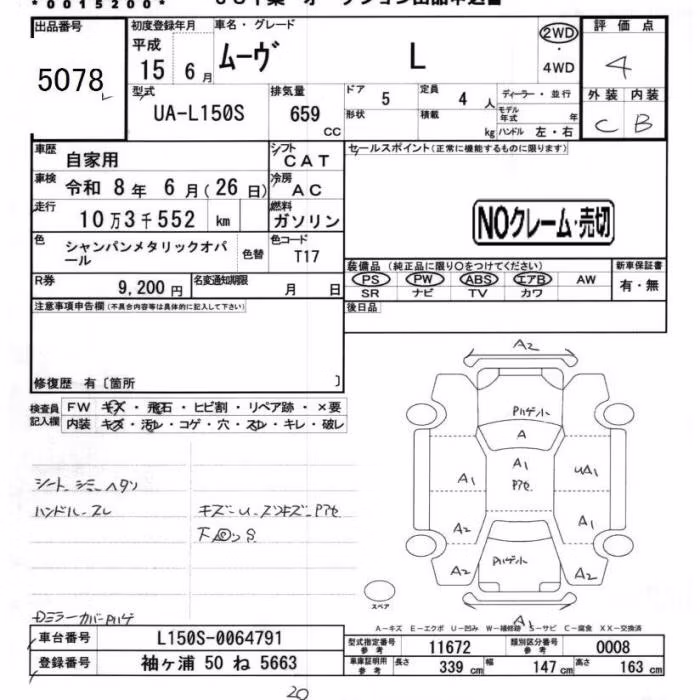 *0015200*
出品番号 初度登録年月 車名・グレード 評価点
5078
平成 15 6月 ムーヴ L 2WD・4WD 4
型式 UA-L150S 排気量 659 CC
ドア 5 定員 4 人 ディーラー・並行
形状 積載 kg モデル年式 年 ハンドル 左・右
外装 内装
C B
車歴 自家用 シフト CAT
車検 令和 8年 6月(26日) 冷房 AC
走行 10万3千552 km 燃料 ガソリン
色 シャンパンメタリックオパール 色替 色コード T17
R券 9,200円 名変通知期限 月 日
セールスポイント(正常に機能するものに限ります)
NOクレーム・売切
装備品 (純正品に限り〇をつけてください) 新車保証書
PS PW ABS エアB AW 有・無
SR ナビ TV カワ
後日品
注意事項申告欄(不具合内容等は具体的に記入して下さい)
修復歴 有〔箇所 〕
検査員記入欄 FW キズ・飛石・ヒビ割・リペア跡・×要
内装 キズ・汚レ・コゲ・穴・スレ・キレ・破レ
シート シミ ヘタリ
ハンドル スレ
A2
A
A1
A1
UA1
A2
A1
A2
A2
A1
スペア
A-キズ E-エクボ U-凹み W-補修跡 S-サビ C-腐食 XX-交換済
車台番号 L150S-0064791
登録番号 袖ヶ浦 50 ね 5663
型式指定番号 参考 11672 類別区分番号 参考 0008
車庫証明用 参考 長さ 339 cm 幅 147 cm 高さ 163 cm
20